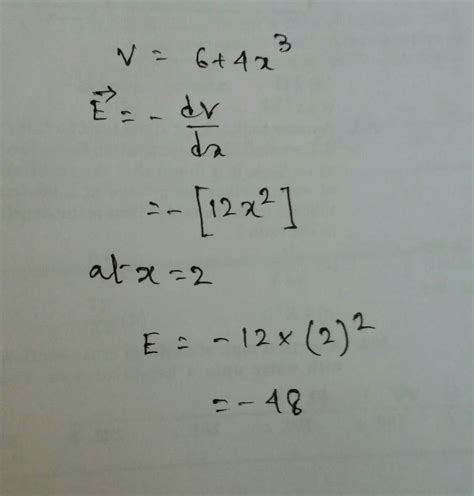 V = 6+4x³
E⃗ = - dV/dx
= - [12x²]
at x = 2
E = - 12 × (2)²
= - 48